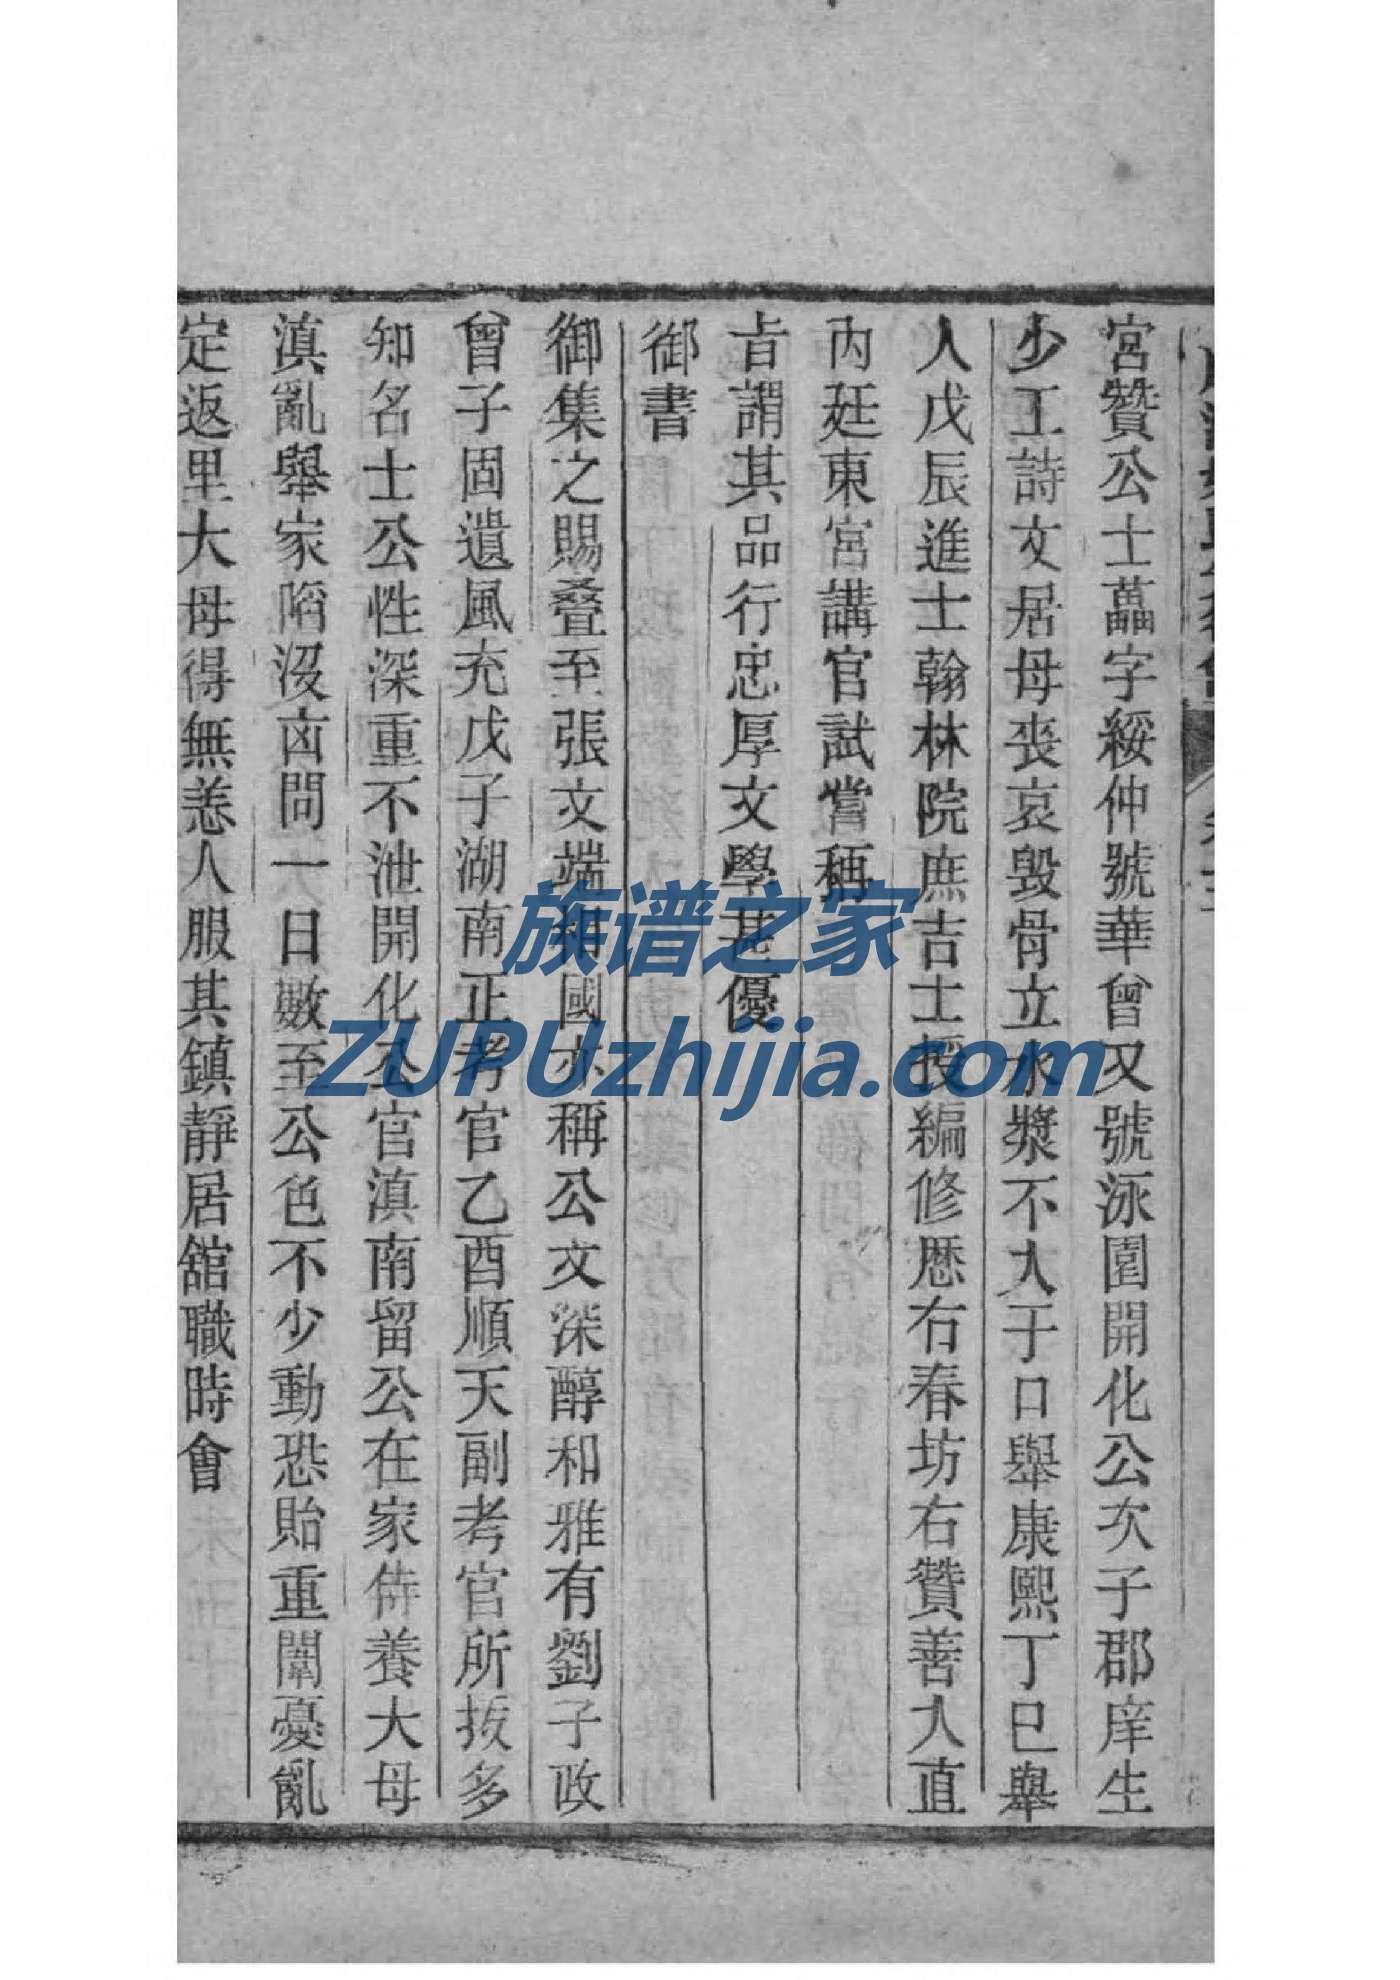 宮贊公士藟字綏仲號華曾又號泳園開化公次子郡庠生
少工詩文居母丧哀毁骨立水漿不入于口舉康熙丁巳舉
人戊辰進士翰林院庶吉士授編修歴右春坊右贊善入直
内廷東宮講官試嘗稱
旨謂其品行忠厚文學甚優
御書
御集之賜叠至張文端相國亦稱公文深醇和雅有劉子政
曾子固遺風充戊子湖南正考官乙酉順天副考官所拔多
知名士公性深重不泄開化公官滇南留公在家侍養大母
滇亂舉家陷没凶問一日數至公色不少動恐貽重闈憂亂
定返里大母得無恙人服其鎮靜居舘職時會
族谱之家
ZUPUzhijia.com